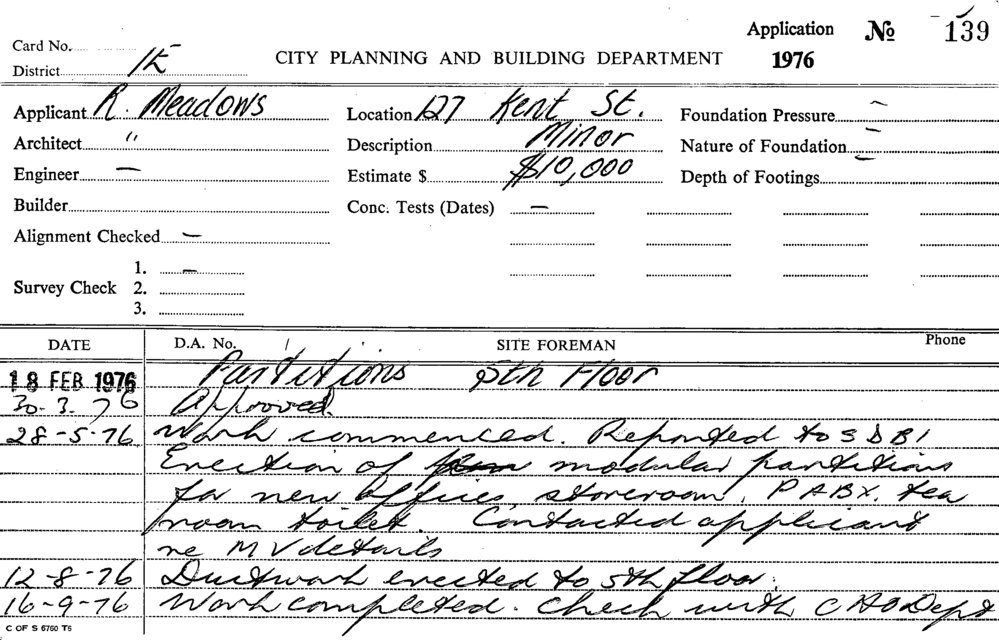 Application № 139
Card No.
District 1E CITY PLANNING AND BUILDING DEPARTMENT 1976
Applicant R. Meadows Location 127 Kent St. Foundation Pressure –
Architect " Description Minor Nature of Foundation –
Engineer – Estimate $ $10,000 Depth of Footings –
Builder Conc. Tests (Dates) –
Alignment Checked –
1. –
Survey Check 2.
3.
DATE D.A. No. SITE FOREMAN Phone
18 FEB 1976 Partitions 5th Floor
30-3-76 Approved.
28-5-76 Work commenced. Reported to S D B I
Erection of modular partitions
for new offices, storeroom, P A B X, tea
room toilet. Contacted applicant
re M V details
12-8-76 Ductwork erected to 5th floor.
16-9-76 Work completed. Check with C H O Dept
C OF S 6760 T5